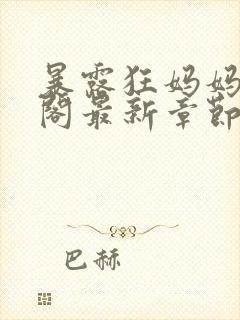 暴露狂妈妈
阁最新章節
巴赫